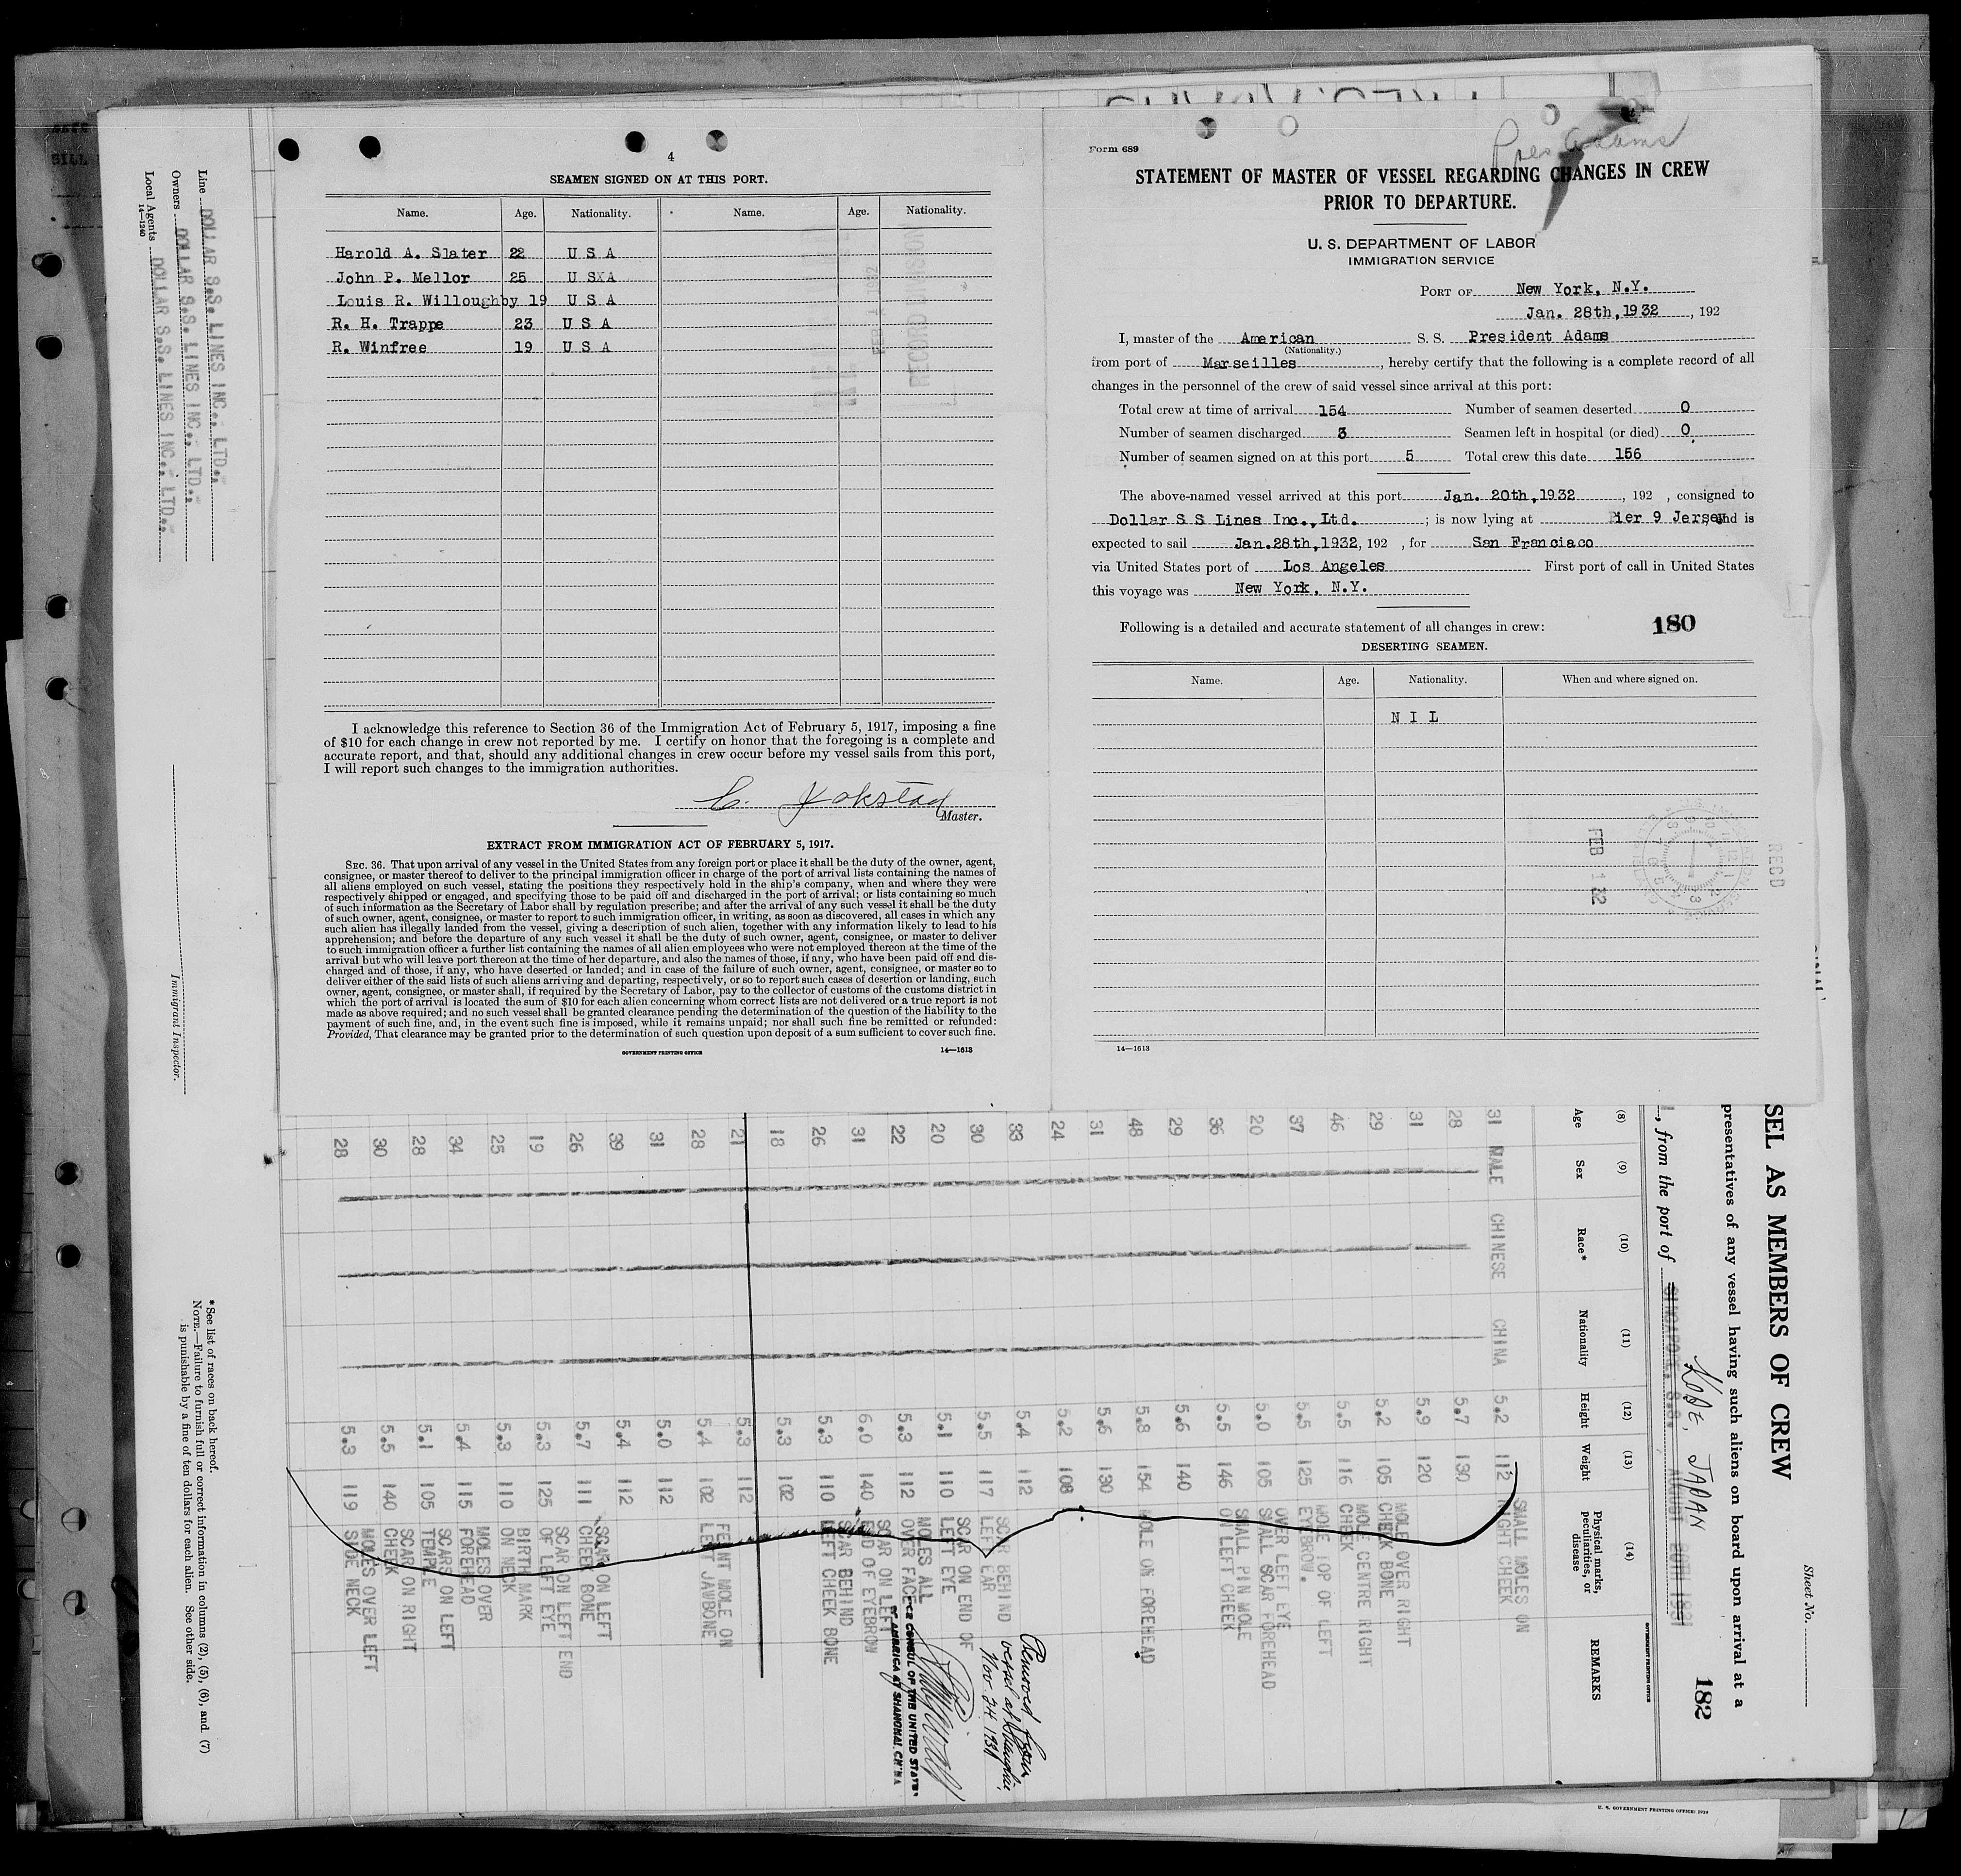 Pres Adams
4
SEAMEN SIGNED ON AT THIS PORT.
Name. Age. Nationality. Name. Age. Nationality.
Harold A. Slater 22 U S A
John P. Mellor 25 U SXA
Louis R. Willoughby 19 U S A
R. H. Trappe 23 U S A
R. Winfree 19 U S A
I acknowledge this reference to Section 36 of the Immigration Act of February 5, 1917, imposing a fine
of $10 for each change in crew not reported by me. I certify on honor that the foregoing is a complete and
accurate report, and that, should any additional changes in crew occur before my vessel sails from this port,
I will report such changes to the immigration authorities.
C. Jokstad
Master.
EXTRACT FROM IMMIGRATION ACT OF FEBRUARY 5, 1917.
SEC. 36. That upon arrival of any vessel in the United States from any foreign port or place it shall be the duty of the owner, agent,
consignee, or master thereof to deliver to the principal immigration officer in charge of the port of arrival lists containing the names of
all aliens employed on such vessel, stating the positions they respectively hold in the ship's company, when and where they were
respectively shipped or engaged, and specifying those to be paid off and discharged in the port of arrival; or lists containing so much
of such information as the Secretary of Labor shall by regulation prescribe; and after the arrival of any such vessel it shall be the duty
of such owner, agent, consignee, or master to report to such immigration officer, in writing, as soon as discovered, all cases in which any
such alien has illegally landed from the vessel, giving a description of such alien, together with any information likely to lead to his
apprehension; and before the departure of any such vessel it shall be the duty of such owner, agent, consignee, or master to deliver
to such immigration officer a further list containing the names of all alien employees who were not employed thereon at the time of the
arrival but who will leave port thereon at the time of her departure, and also the names of those, if any, who have been paid off and dis-
charged and of those, if any, who have deserted or landed; and in case of the failure of such owner, agent, consignee, or master so to
deliver either of the said lists of such aliens arriving and departing, respectively, or so to report such cases of desertion or landing, such
owner, agent, consignee, or master shall, if required by the Secretary of Labor, pay to the collector of customs of the customs district in
which the port of arrival is located the sum of $10 for each alien concerning whom correct lists are not delivered or a true report is not
made as above required; and no such vessel shall be granted clearance pending the determination of the question of the liability to the
payment of such fine, and, in the event such fine is imposed, while it remains unpaid; nor shall such fine be remitted or refunded:
Provided, That clearance may be granted prior to the determination of such question upon deposit of a sum sufficient to cover such fine.
GOVERNMENT PRINTING OFFICE 14—1613
Form 689
STATEMENT OF MASTER OF VESSEL REGARDING CHANGES IN CREW
PRIOR TO DEPARTURE.
U. S. DEPARTMENT OF LABOR
IMMIGRATION SERVICE
PORT OF New York, N.Y.
Jan. 28th,1932 , 192
I, master of the American S. S. President Adams
(Nationality.)
from port of Marseilles , hereby certify that the following is a complete record of all
changes in the personnel of the crew of said vessel since arrival at this port:
Total crew at time of arrival 154 Number of seamen deserted 0
Number of seamen discharged 3 Seamen left in hospital (or died) 0
Number of seamen signed on at this port 5 Total crew this date 156
The above-named vessel arrived at this port Jan. 20th,1932 , 192 , consigned to
Dollar S S Lines Inc.,Ltd. ; is now lying at Pier 9 Jersey and is
expected to sail Jan.28th,1932, 192 , for San Franciaco
via United States port of Los Angeles First port of call in United States
this voyage was New York, N.Y.
Following is a detailed and accurate statement of all changes in crew: 180
DESERTING SEAMEN.
Name. Age. Nationality. When and where signed on.
N I L
FEB 1 32
RECD
14—1613
Line DOLLAR S.S. LINES INC., LTD.
Owners DOLLAR S.S. LINES INC., LTD.
Local Agents DOLLAR S.S. LINES INC., LTD.
14—1240
Immigrant Inspector.
* See list of races on back hereof.
NOTE.—Failure to furnish full or correct information in columns (2), (5), (6), and (7)
is punishable by a fine of ten dollars for each alien. See other side.
Sheet No.
SEL AS MEMBERS OF CREW
182
presentatives of any vessel having such aliens on board upon arrival at a
KOBE, JAPAN
, from the port of SINGAPORE, S.S. AUGUST 20TH 1931
GOVERNMENT PRINTING OFFICE
(8) (9) (10) (11) (12) (13) (14)
Age Sex Race* Nationality Height Weight Physical marks, peculiarities, or disease REMARKS
31 MALE CHINESE CHINA 5.2 112 SMALL MOLES ON RIGHT CHEEK
28 5.7 130
31 5.9 120
29 5.2 105 MOLE OVER RIGHT CHEEK BONE
46 5.5 116 MOLE CENTRE RIGHT CHEEK
37 5.5 125 MOLE TOP OF LEFT EYEBROW.
20 5.0 105 SMALL SCAR FOREHEAD OVER LEFT EYE
36 5.5 146 SMALL PIN MOLE ON LEFT CHEEK
29 5.6 140
48 5.8 154 MOLE ON FOREHEAD
31 5.6 130
24 5.2 108
33 5.4 112
30 5.5 117 SCAR BEHIND LEFT EAR
20 5.1 110 SCAR ON END OF LEFT EYE
22 5.3 112 MOLES ALL OVER FACE
31 6.0 140 SCAR ON LEFT END OF EYEBROW
26 5.3 110 SCAR BEHIND LEFT CHEEK BONE
18 5.3 102
21 5.3 112
28 5.4 102 FEINT MOLE ON LEFT JAWBONE
31 5.0 112
39 5.4 112
26 5.7 111 SCAR ON LEFT CHEEK BONE
19 5.3 125 SCAR ON LEFT END OF LEFT EYE
25 5.3 110 BIRTH MARK ON NECK
34 5.4 115 MOLES OVER FOREHEAD
28 5.1 105 SCARS ON LEFT TEMPLE
30 5.5 140 SCAR ON RIGHT CHEEK
28 5.3 119 MOLES OVER LEFT SIDE NECK
Removed from
vessel at Shanghai,
Nov. 24 1931
CE CONSUL OF THE UNITED STATES
OF AMERICA AT SHANGHAI, CHINA
U. S. GOVERNMENT PRINTING OFFICE: 1929